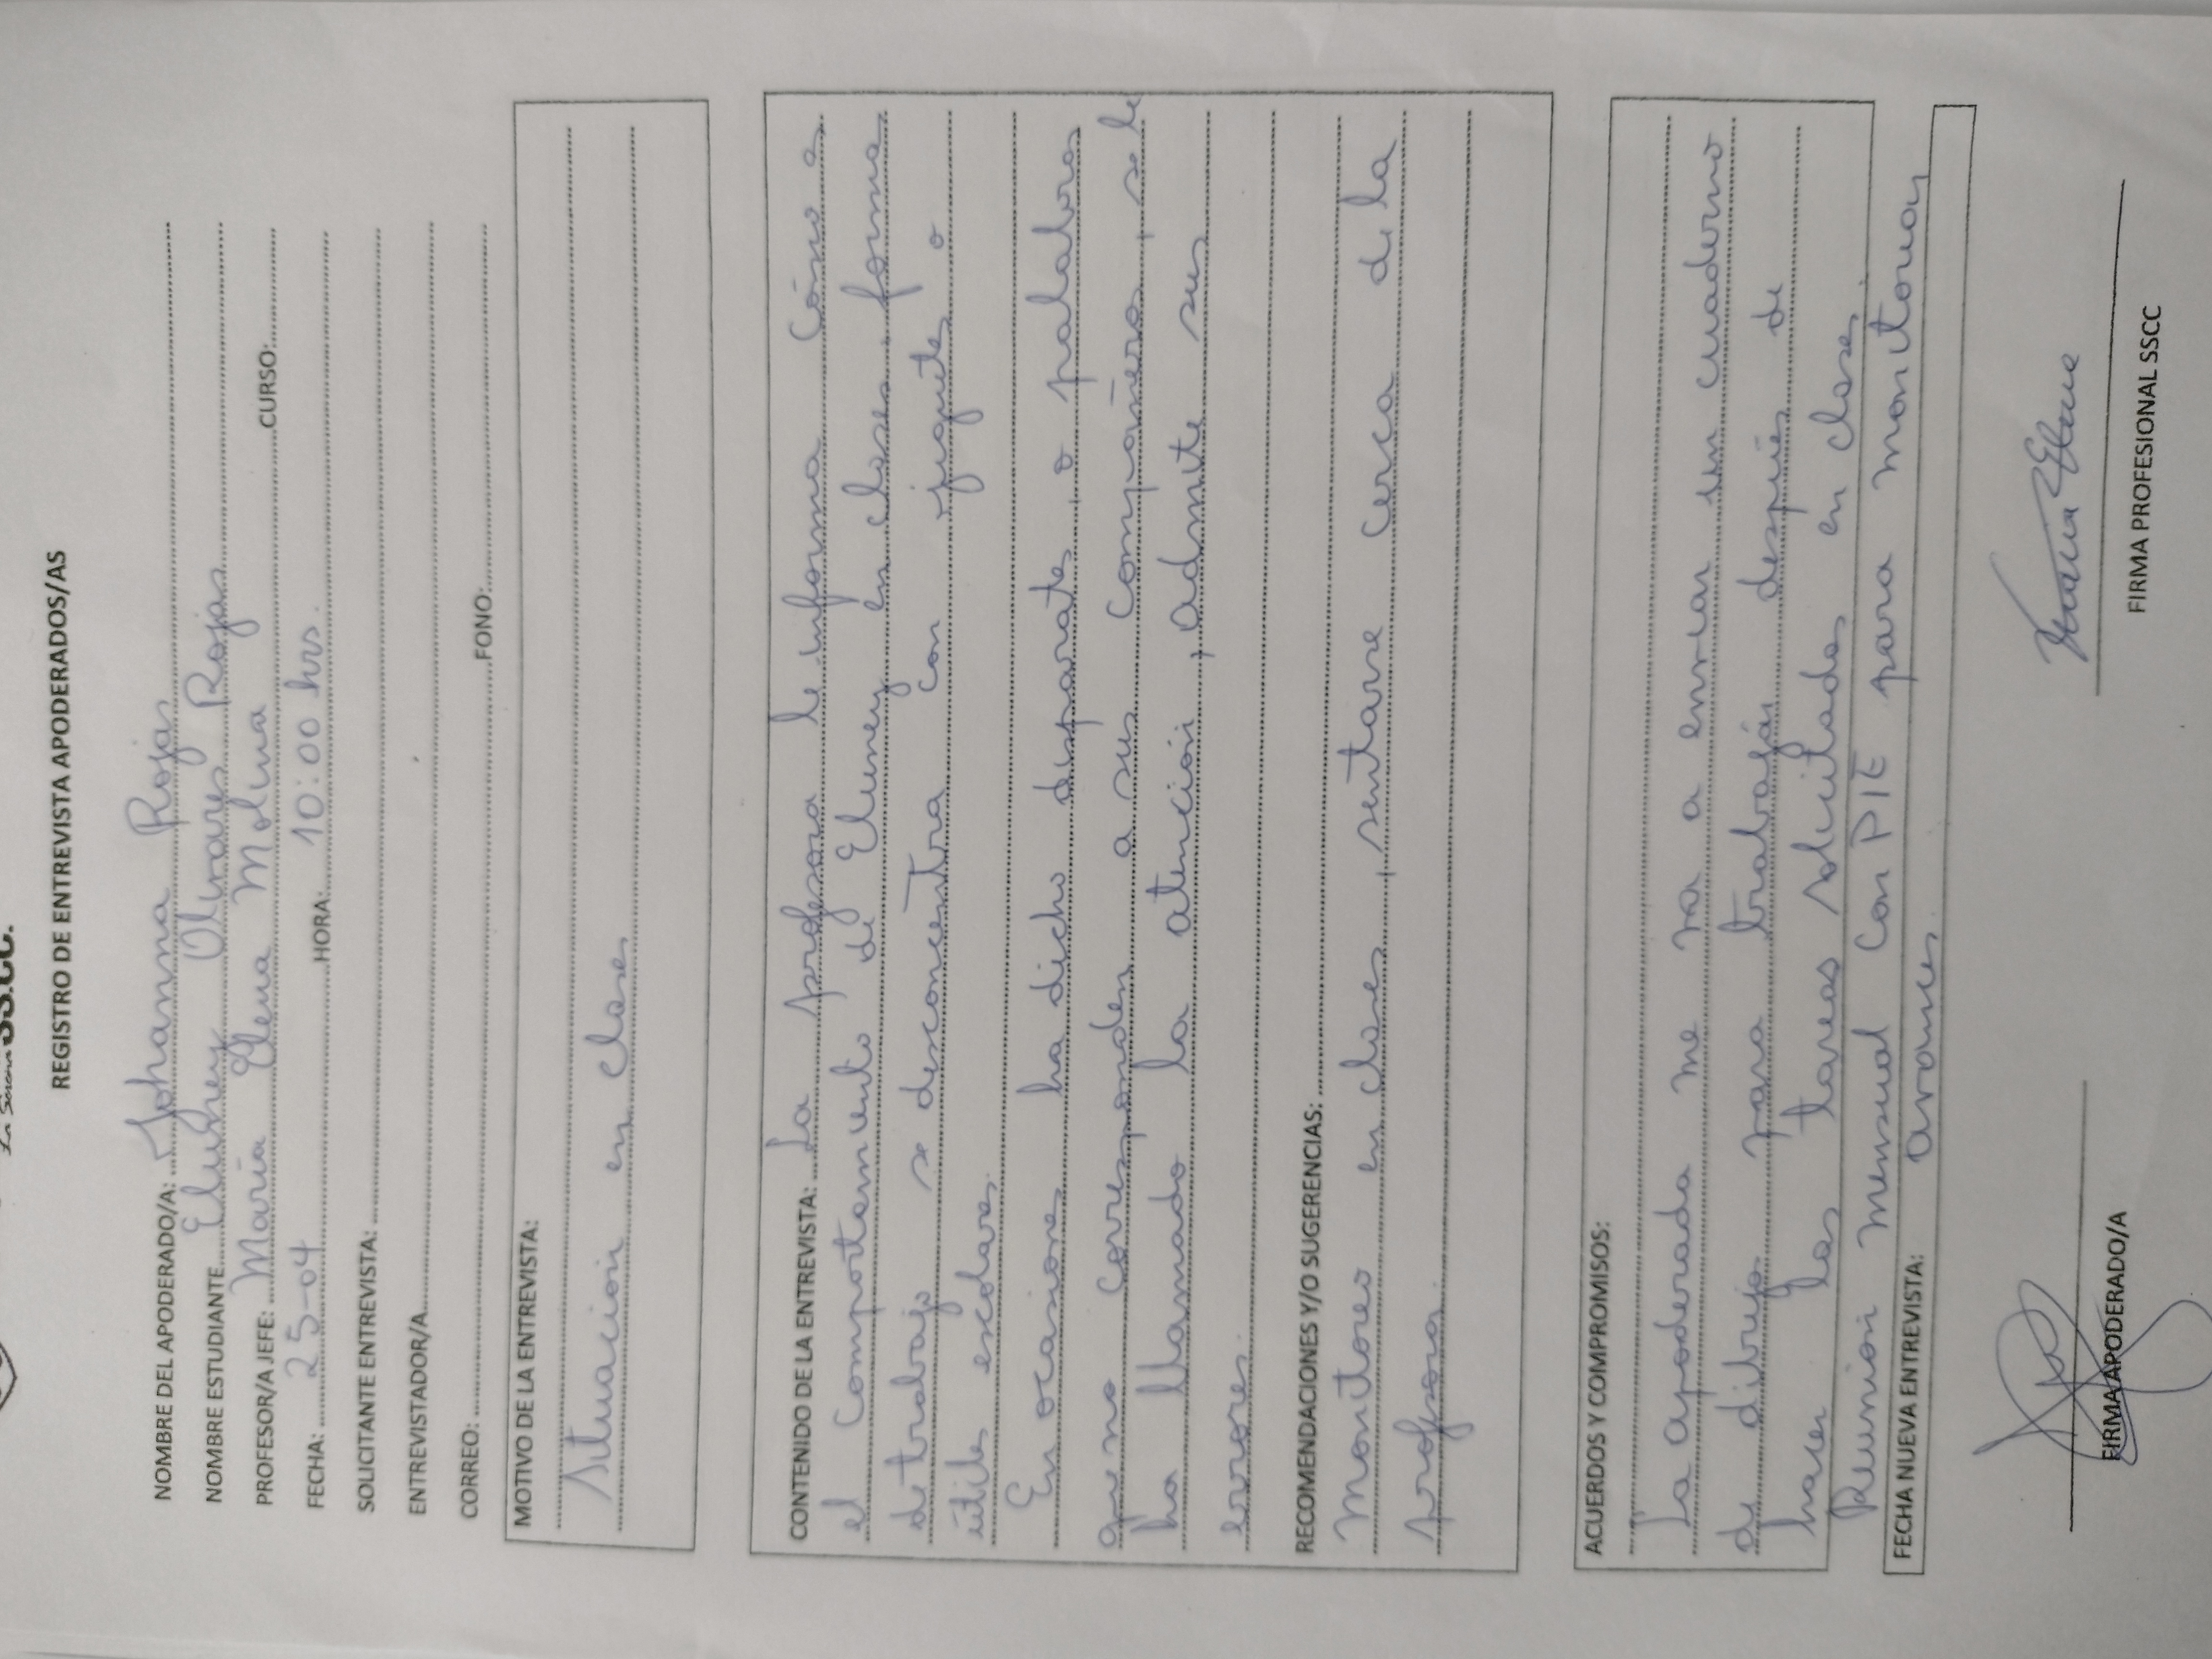 SS.CC.
REGISTRO DE ENTREVISTA APODERADOS/AS
NOMBRE DEL APODERADO/A: Johanna Rojas
NOMBRE ESTUDIANTE Olivares Rojas
PROFESOR/A JEFE: María Elena Molina CURSO:
FECHA: 25-04 HORA: 10:00 hrs.
SOLICITANTE ENTREVISTA:
ENTREVISTADOR/A
CORREO: FONO:
MOTIVO DE LA ENTREVISTA:
Situación en clases
CONTENIDO DE LA ENTREVISTA: La profesora le informa cómo es
el comportamiento de en clases, forma
de trabajo se desconcentra con juguetes o
útiles escolares.
En ocasiones ha dicho disparates, o palabras
que no corresponden a sus compañeros, se le
ha llamado la atención, admite sus
errores.
RECOMENDACIONES Y/O SUGERENCIAS:
Monitoreo en clases, sentarse cerca de la
profesora.
ACUERDOS Y COMPROMISOS:
La apoderada me va a enviar un cuaderno
de dibujo para trabajar después de
hacer las tareas solicitadas en clases.
Reunión mensual con PIE para monitorear
FECHA NUEVA ENTREVISTA: avances.
FIRMA APODERADO/A
FIRMA PROFESIONAL SSCC